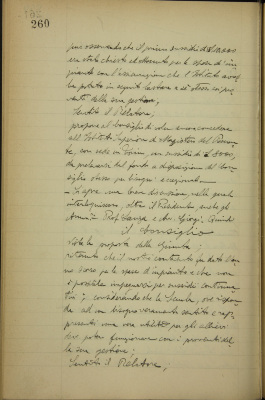 260
pure osservando che il primo sussidio di L.
era stato chiesto ed ottenuto per le spese di im
pianto con l'assicurazione che l'Istituto avreb
be potuto in seguito bastare a sé stesso coi pro
venti della sua gestione,
Sentito il Relatore,
propone al Consiglio di voler ancora concedere
all'Istituto Superiore di Magistero del Piemon
te, con sede in Torino, un sussidio di L.
da prelevarsi dal fondo a disposizione del Con
siglio stesso pei bisogni
Si apre una breve discussione, nella quale
interloquiscono, oltre il Presidente, anche gli
Prof. e Avv. Giorgi, quindi
il Consiglio
Vista la proposta della Giunta;
ritenuto che il contributo fu dato l'an
no scorso per le spese di impianto e che non
è possibile impegnarsi per sussidi continua
tivi; considerando che la Scuola, pur rispon
de ad un bisogno veramente sentito e rap
presenti una vera utilità per gli allievi
deve poter funzionare con i proventi del
la sua gestione;
Sentito il Relatore,